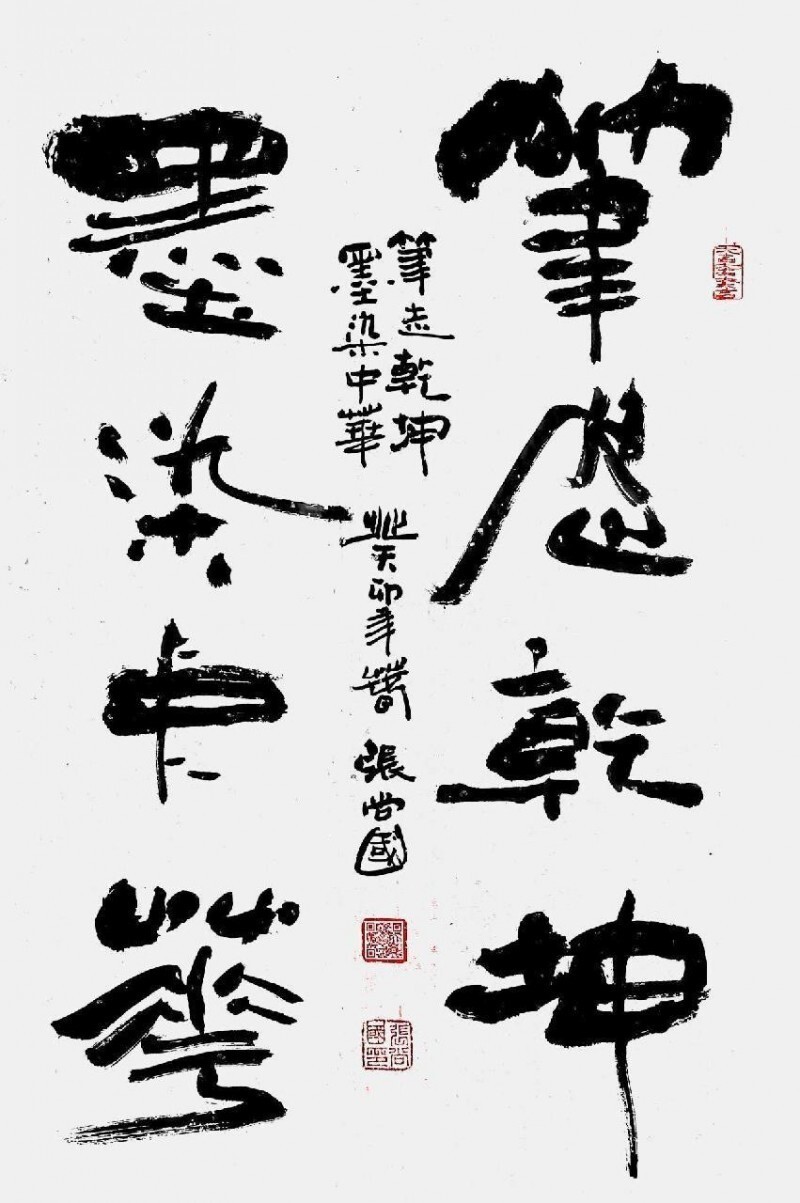 筆走乾坤
筆走乾坤
墨染中華
癸卯年
張尚國
張尚國印
墨染中華